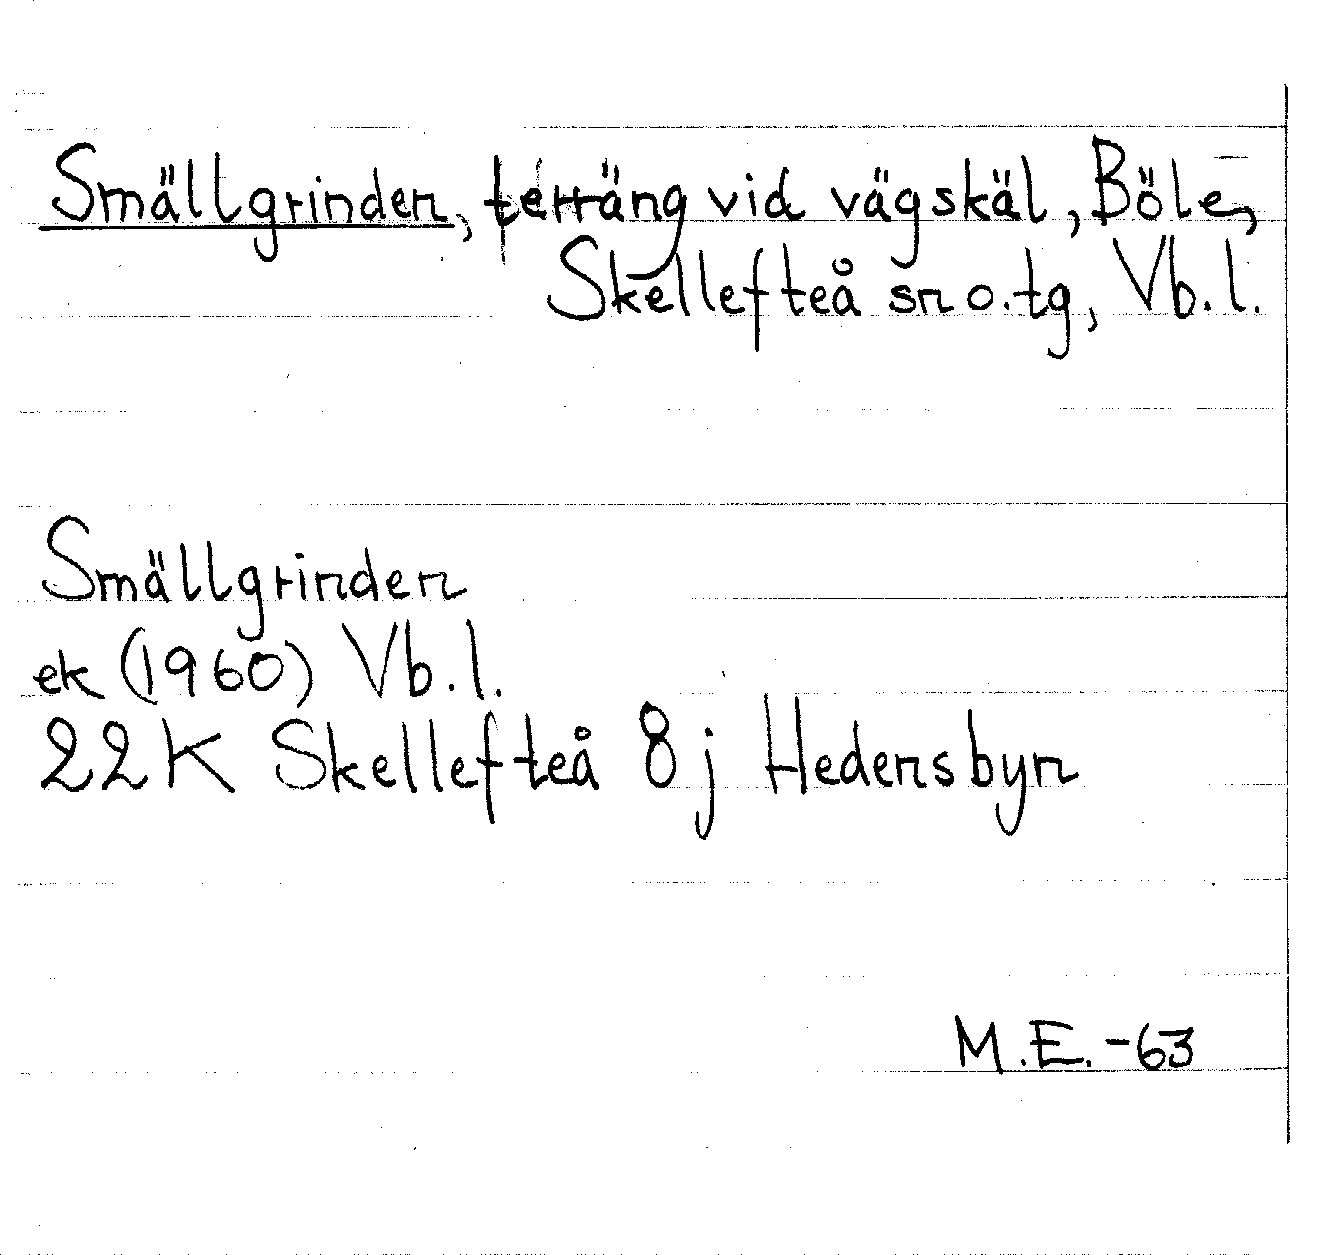 Smällgrinden, terräng vid vägskäl, Böle,
Skellefteå sn o. tg, Vb. l.
Smällgrinden
ek (1960) Vb. l.
22K Skellefteå 8j Hedensbyn
M.E. -63